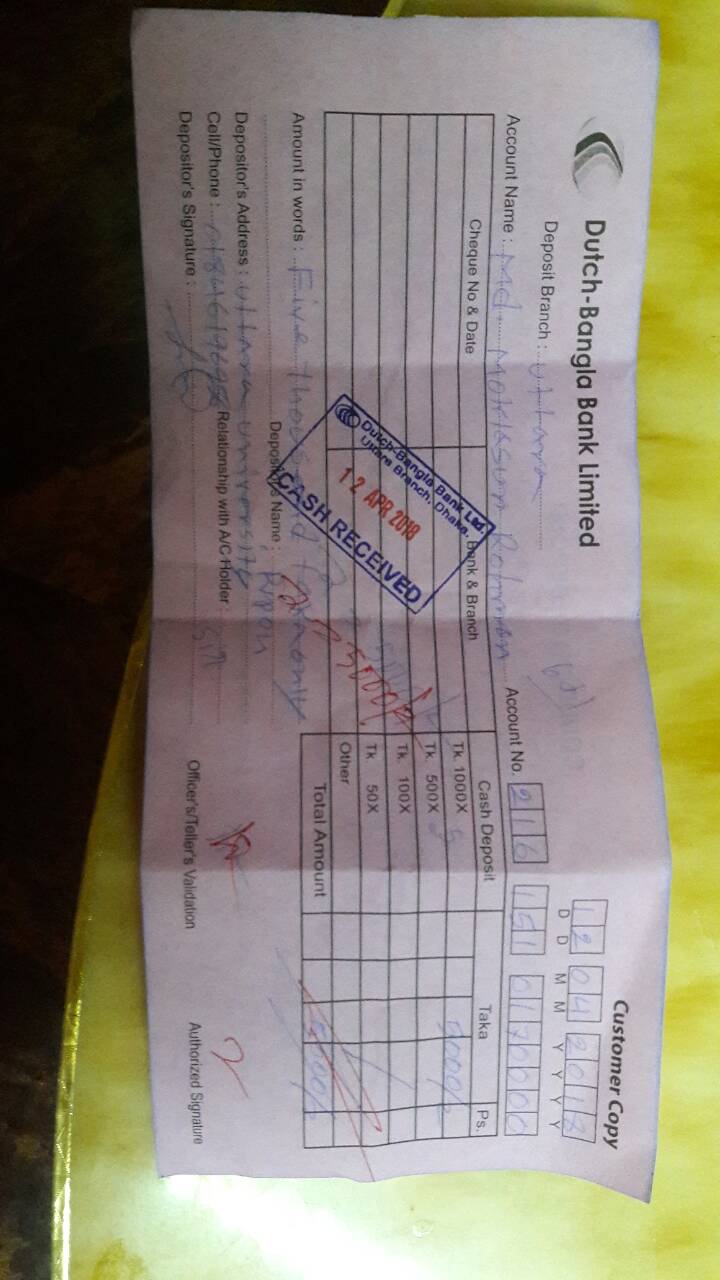 Dutch-Bangla Bank Limited
Customer Copy
12 04 2018
D D M M Y Y Y Y
Deposit Branch : Uttara
Account Name : Md. Account No. 216 151 0170000
Cheque No & Date Bank & Branch Cash Deposit Taka Ps.
Tk. 1000X 5 5000/-
Tk. 500X
Tk. 100X
Tk. 50X
Other
Total Amount 5000/-
5000/-
Dutch-Bangla Bank Ltd.
Uttara Branch, Dhaka.
12 APR 2018
CASH RECEIVED
Amount in words : Five thousand only
Depositor's Name : Ripon
Depositor's Address : Uttara University
Cell/Phone : Relationship with A/C Holder :
Depositor's Signature : Officer's/Teller's Validation Authorized Signature